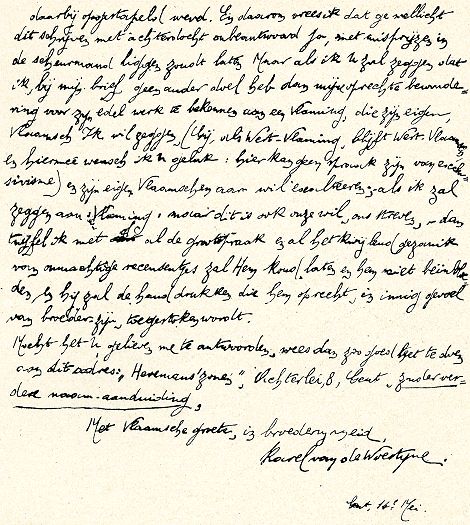 daarbij opgestapeld werd. En daarom vrees ik dat ge wellicht
dit schrijven met achterdocht onbeantwoord zou, met misprijzen in
de scheurmand liggen zoudt laten. Maar als ik U zal zeggen dat
ik, bij mijn brief, geen ander doel heb dan mijn oprechte bewonde-
ring voor zijn edel werk te bekennen aan een Vlaming, die zijn eigen,
Vlaamsch Ik wil zeggen, (hij, als West-Vlaming, blijft West-Vlaming,
en hiermee wensch ik U geluk: hier kan geen spraak zijn van exclu-
sivisme) en zijn eigen Vlaamschen aard wil - als ik zal
zeggen aan Vlaming: maar dit is ook onze wil, ons streven, - dan
twijfel ik niet al de grootspraak en al het gezanik
van onmachtige recensentjes zal Hem koud laten en hem niet
den En hij zal de hand drukken die hem oprecht, in innig gevoel
van broeder-zijn, toegestoken wordt.
Mocht het U gelieven me te antwoorden, wees dan zoo goed het te doen
aan dit adres: "Heremans' zonen", Vichterlei, 8, Gent, zonder ver-
dere naam-aanduiding.
Met Vlaamsche groeten, in broederzin,
Karel van de Woestijne.
Gent, 14e Mei.